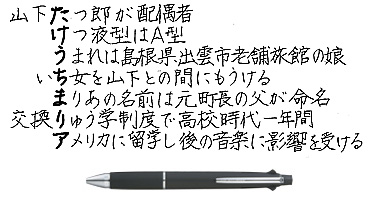 山下たつ郎が配偶者
けつ液型はA型
うまれは島根県出雲市老舗旅館の娘
いち女を山下との間にもうける
まりあの名前は元町長の父が命名
交換りゅう学制度で高校時代一年間
アメリカに留学し後の音楽に影響を受ける